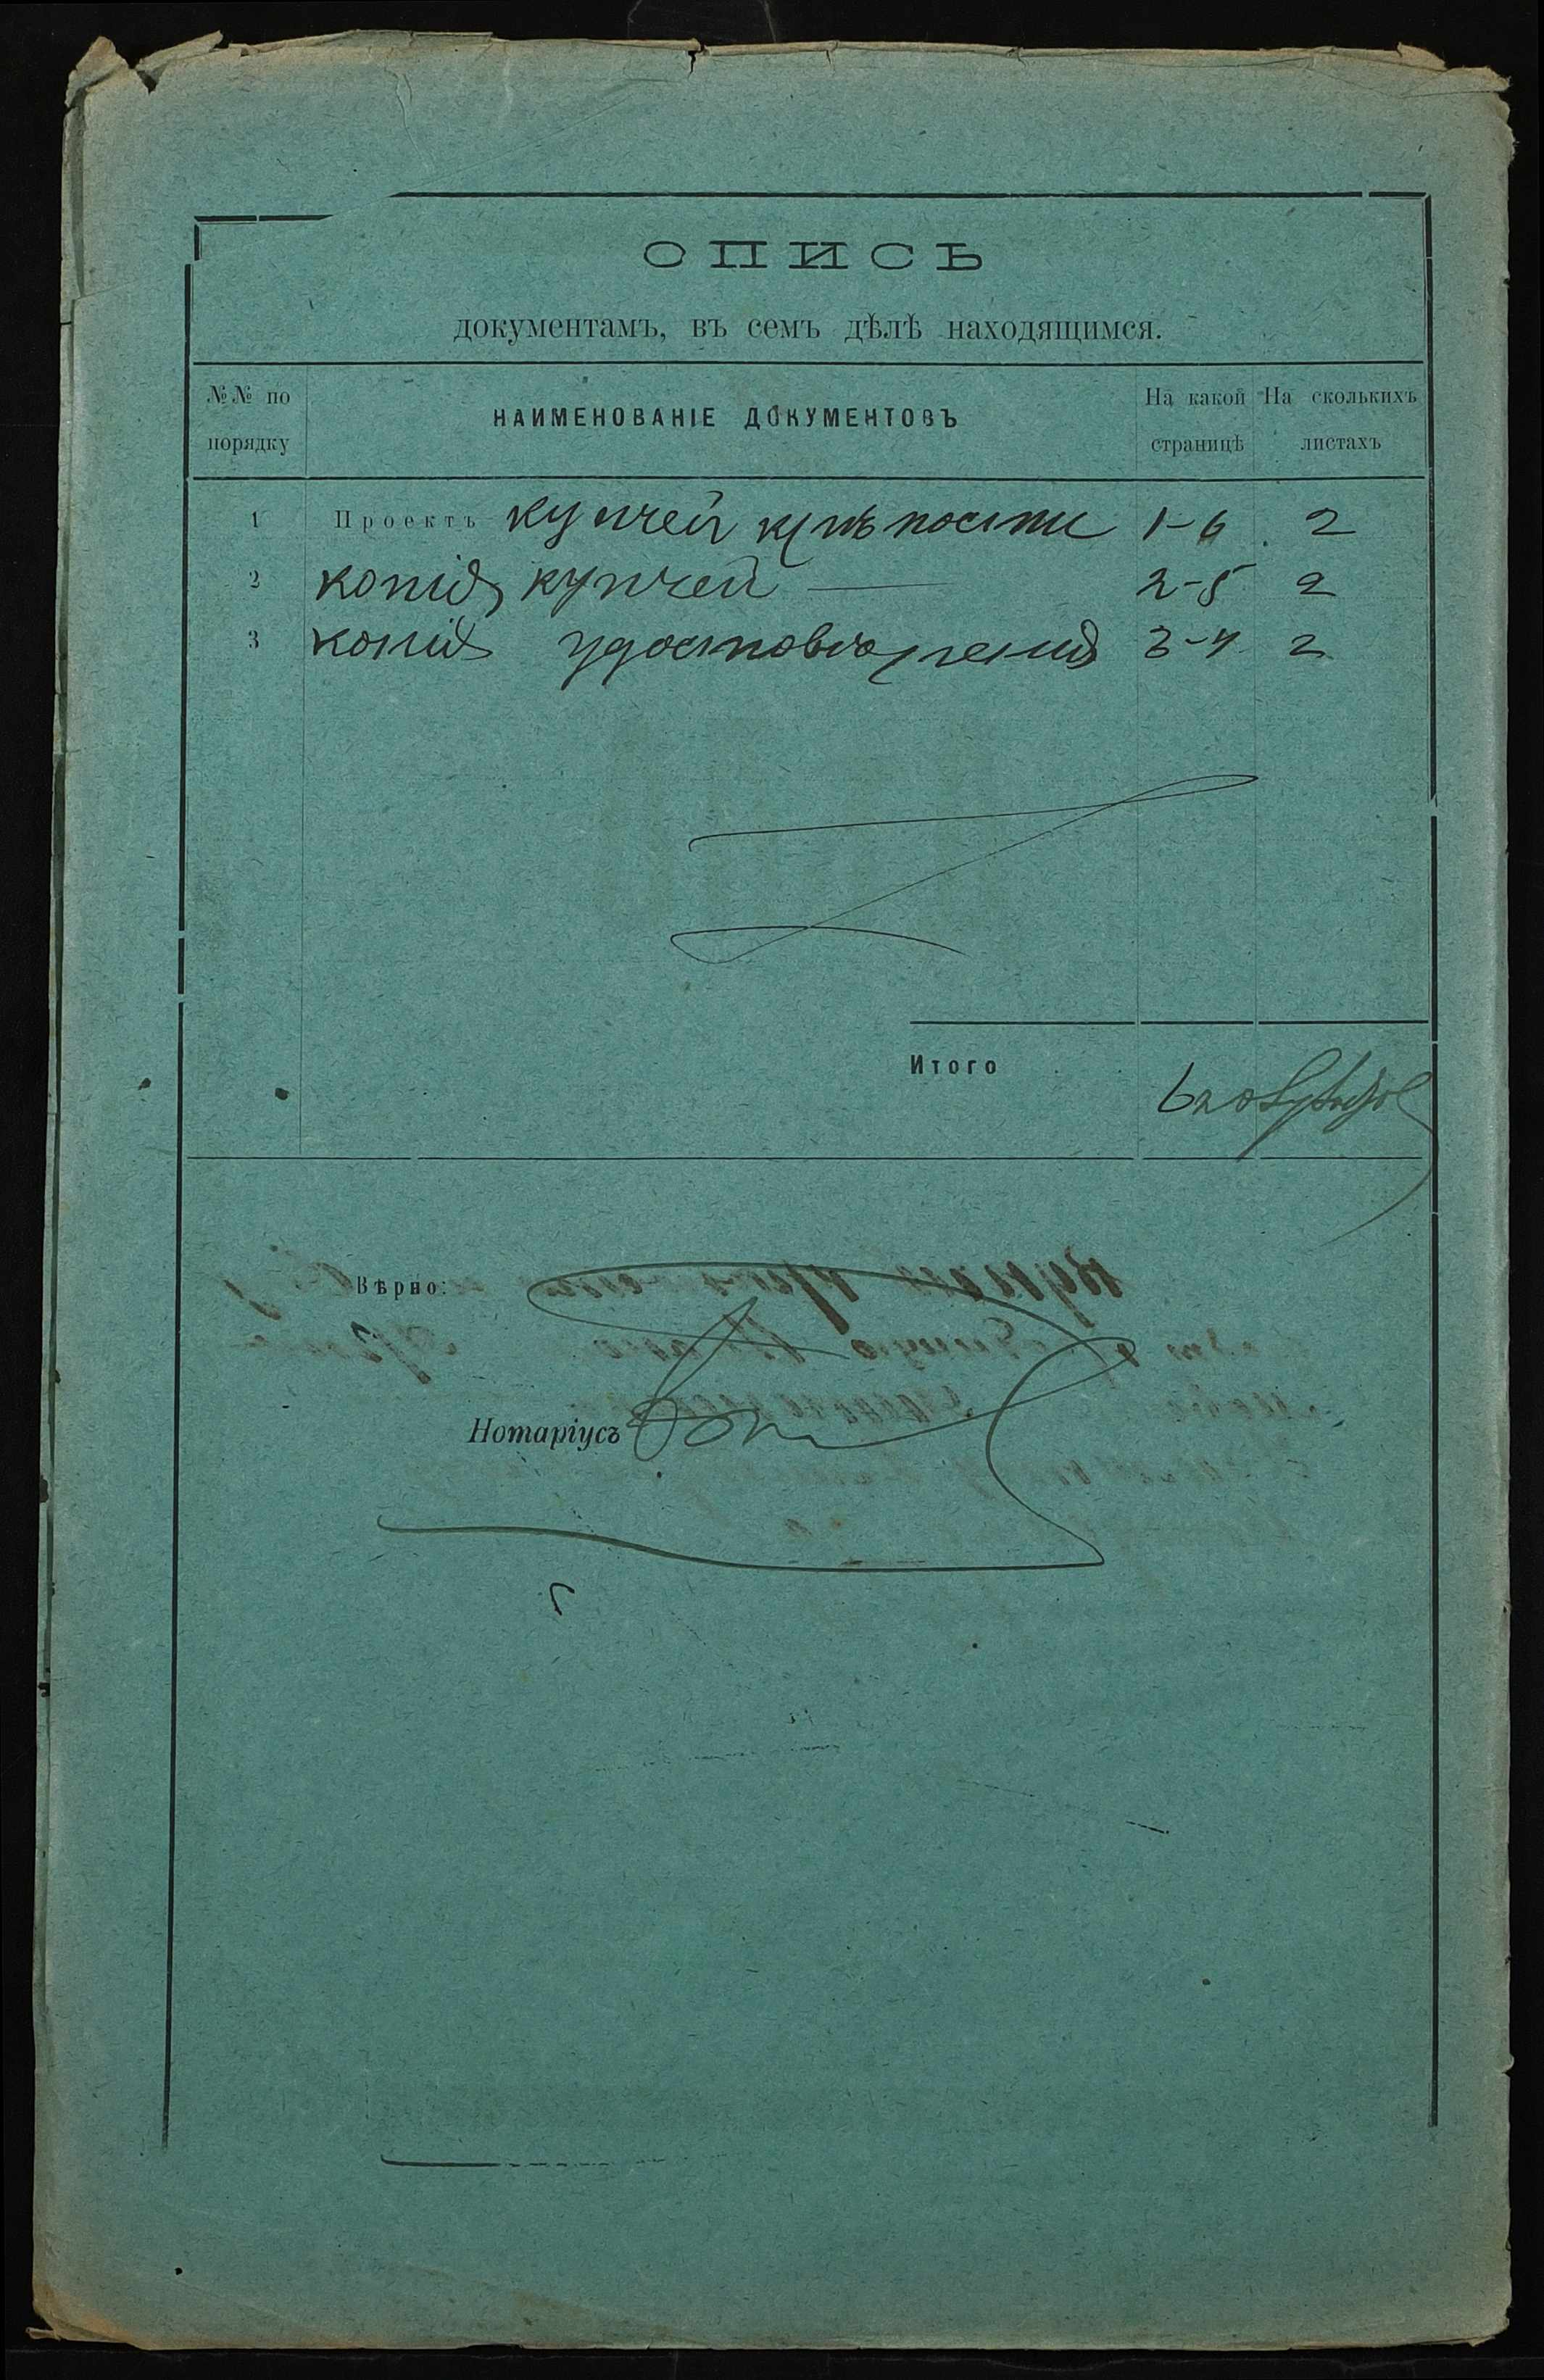 ОПИСЬ
документамъ, въ семъ дѣлѣ находящимся.
№№ по порядку НАИМЕНОВАНІЕ ДОКУМЕНТОВЪ На какой страницѣ На сколькихъ листахъ
1 Проектъ купчей крѣпости 1-6 2
2 копія купчей 2-5 2
3 копія удостовѣренія 3-4 2
Итого 6
Вѣрно:
Нотаріусъ